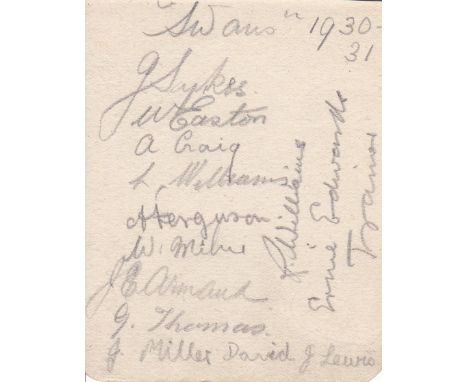 "Swans" 1930-
31
J Sykes.
W Easton
A Craig
L. Williams
H Ferguson.
W. Milne
J E Armand
G. Thomas.
J Miller David J Lewis
J. Williams
Ernie Edwards
Trainer